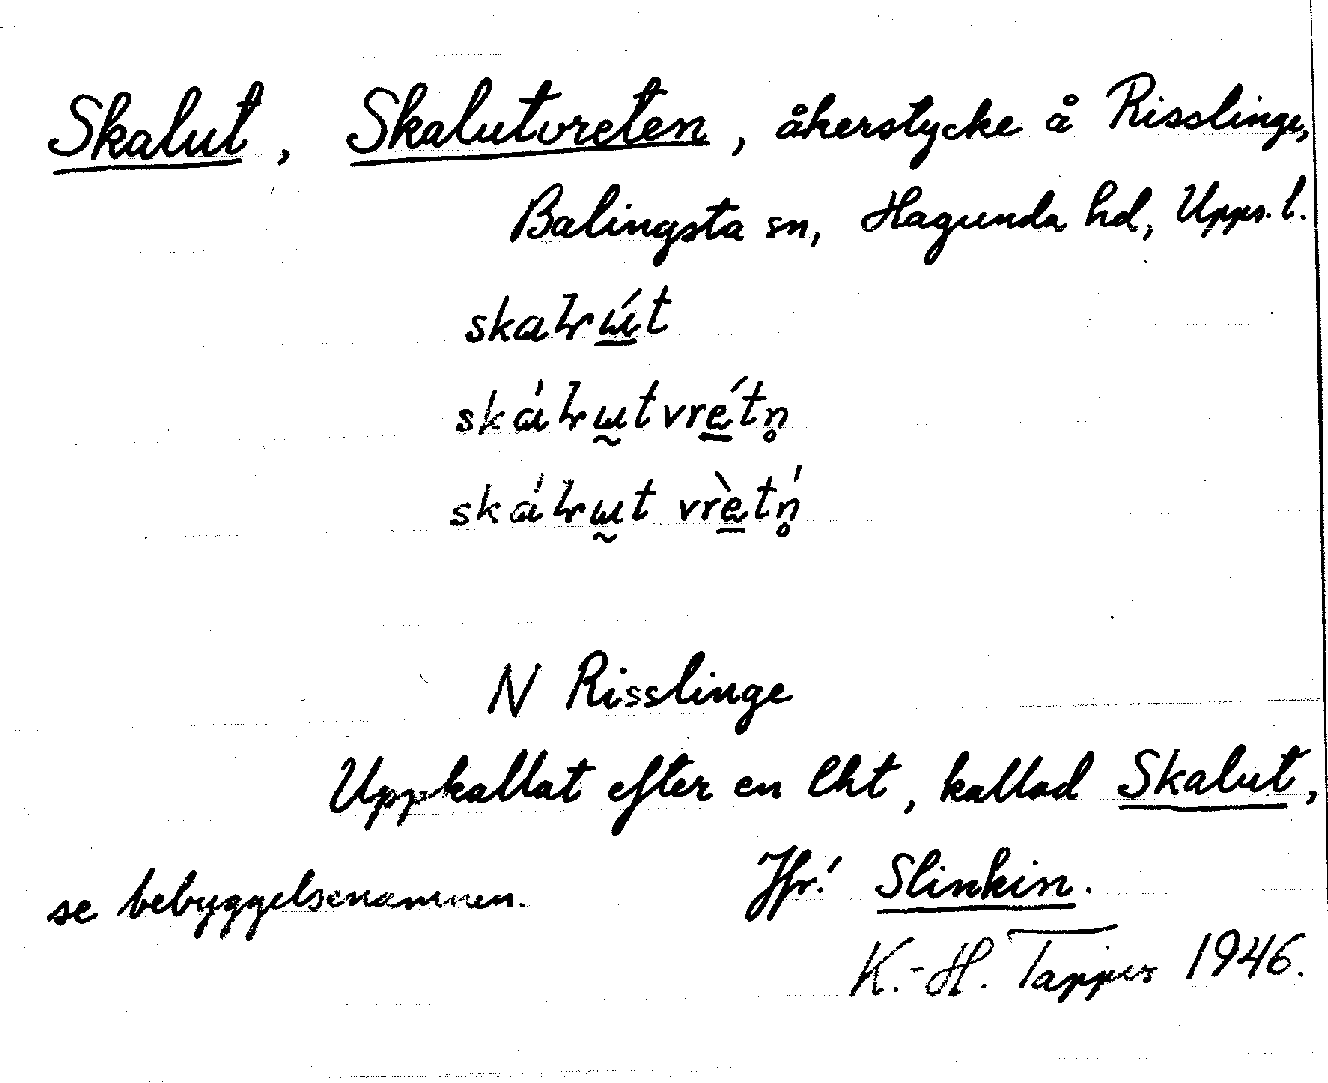 Skalut, Skalutvreten, åkerstycke å Risslinge,
Balingsta sn, Hagunda hd, Upps. l.
N Risslinge
Uppkallat efter en lht, kallad Skalut,
se bebyggelsenamnen. Jfr! Slinkin.
K.-H. Tapper 1946.